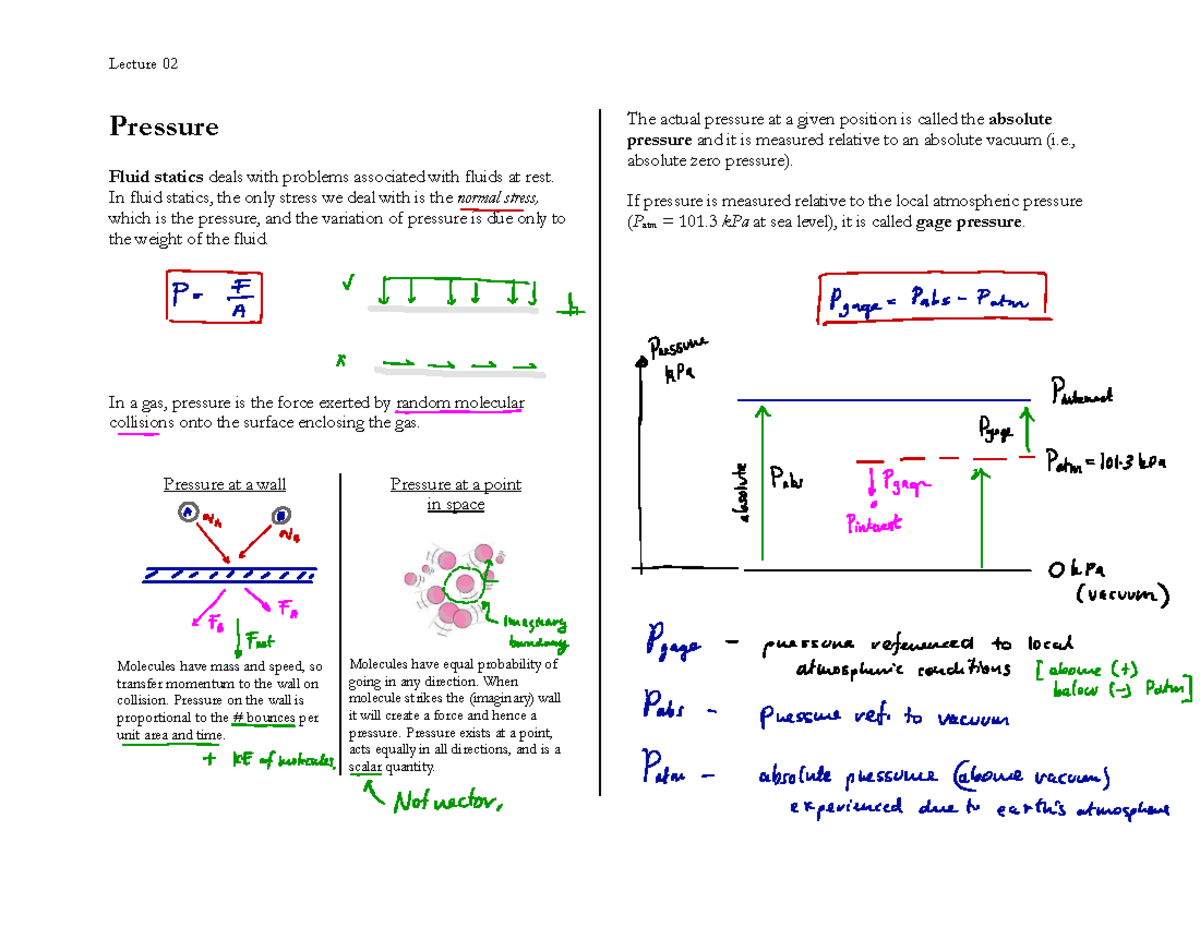 Lecture 02
Pressure
Fluid statics deals with problems associated with fluids at rest.
In fluid statics, the only stress we deal with is the normal stress,
which is the pressure, and the variation of pressure is due only to
the weight of the fluid
P = F
A
√
x
In a gas, pressure is the force exerted by random molecular
collisions onto the surface enclosing the gas.
Pressure at a wall
A
B
F_B
F_A
Fnet
Molecules have mass and speed, so
transfer momentum to the wall on
collision. Pressure on the wall is
proportional to the # bounces per
unit area and time.
+ KE of molecules.
Pressure at a point
in space
Imaginary
boundary
Molecules have equal probability of
going in any direction. When
molecule strikes the (imaginary) wall
it will create a force and hence a
pressure. Pressure exists at a point,
acts equally in all directions, and is a
scalar quantity.
Not vector.
The actual pressure at a given position is called the absolute
pressure and it is measured relative to an absolute vacuum (i.e.,
absolute zero pressure).
If pressure is measured relative to the local atmospheric pressure
(Patm = 101.3 kPa at sea level), it is called gage pressure.
Pgage = Pabs - Patm
Pressure
kPa
Pinterest
Pgage
Patm = 101.3 kPa
absolute
Pabs
Pgage
Pinterest
0 kPa
(vacuum)
Pgage - pressure referenced to local
atmospheric conditions [above (+)
below (-) Patm]
Pabs - Pressure ref. to vacuum
Patm - absolute pressure (above vacuum)
experienced due to earth's atmosphere